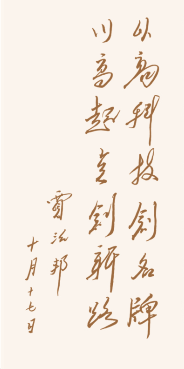 以高科技创名牌
以高起点创新路
贾沁邦
十月十七日